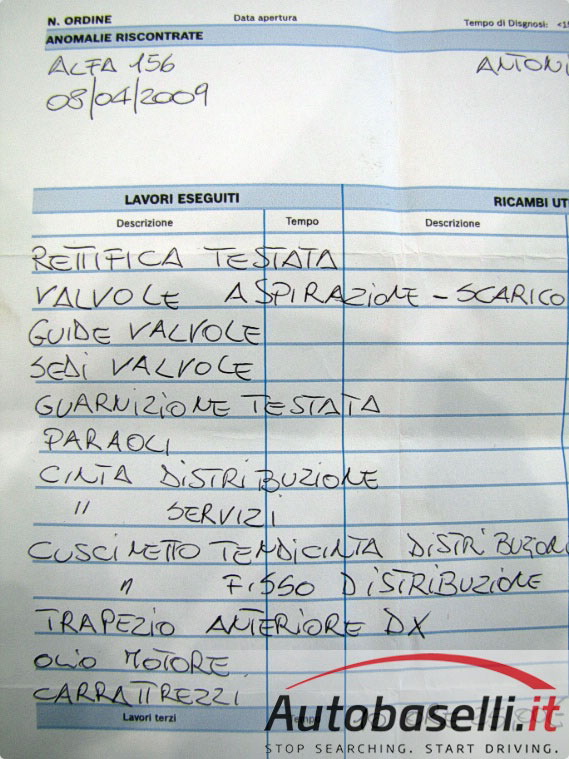 N. ORDINE Data apertura Tempo di Diagnosi: <1
ANOMALIE RISCONTRATE
ALFA 156 ANTONI
08/04/2009
LAVORI ESEGUITI RICAMBI UT
Descrizione Tempo Descrizione
RETTIFICA TESTATA
VALVOLE ASPIRAZIONE - SCARICO
GUIDE VALVOLE
SEDI VALVOLE
GUARNIZIONE TESTATA
PARAOLI
CINTA DISTRIBUZIONE
" SERVIZI
CUSCINETTO TENDICINTA DISTRIBUZION
" FISSO DISTRIBUZIONE
TRAPEZIO ANTERIORE DX
OLIO MOTORE
CARRATTREZZI
Lavori terzi
Autobaselli.it
STOP SEARCHING. START DRIVING.